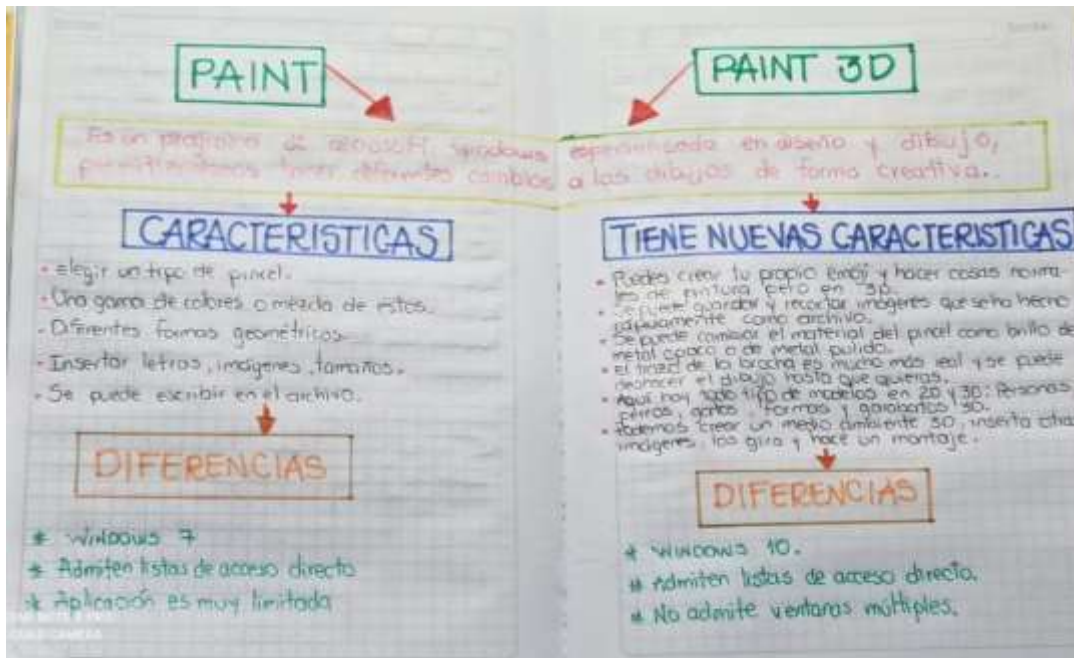 PAINT
PAINT 3D
Es un programa de Microsoft Windows especializado en diseño y dibujo,
permitiéndonos hacer diferentes cambios a los dibujos de forma creativa.
CARACTERISTICAS
- Elegir un tipo de pincel.
- Una gama de colores o mezcla de estos.
- Diferentes formas geométricas.
- Insertar letras, imágenes, tamaños.
- Se puede escribir en el archivo.
DIFERENCIAS
* WINDOWS 7
* Admiten listas de acceso directo
* Aplicación es muy limitada
TIENE NUEVAS CARACTERISTICAS
- Puedes crear tu propio emoji y hacer cosas norma-
les de pintura pero en 3D.
- Se puede guardar y recortar imágenes que se ha hecho
previamente como archivo.
- Se puede cambiar el material del pincel como brillo de
metal opaco o de metal pulido.
- El trazo de la brocha es mucho más real y se puede
deshacer el dibujo hasta que quieras.
- Aqui hay todo tipo de modelos en 2D y 3D: Personas
perros, gatos, formas y garabatos 3D.
- Podemos crear un medio ambiente 3D, inserta otras
imágenes, las gira y hace un montaje.
DIFERENCIAS
* WINDOWS 10.
* Admiten listas de acceso directo.
* No admite ventanas múltiples.